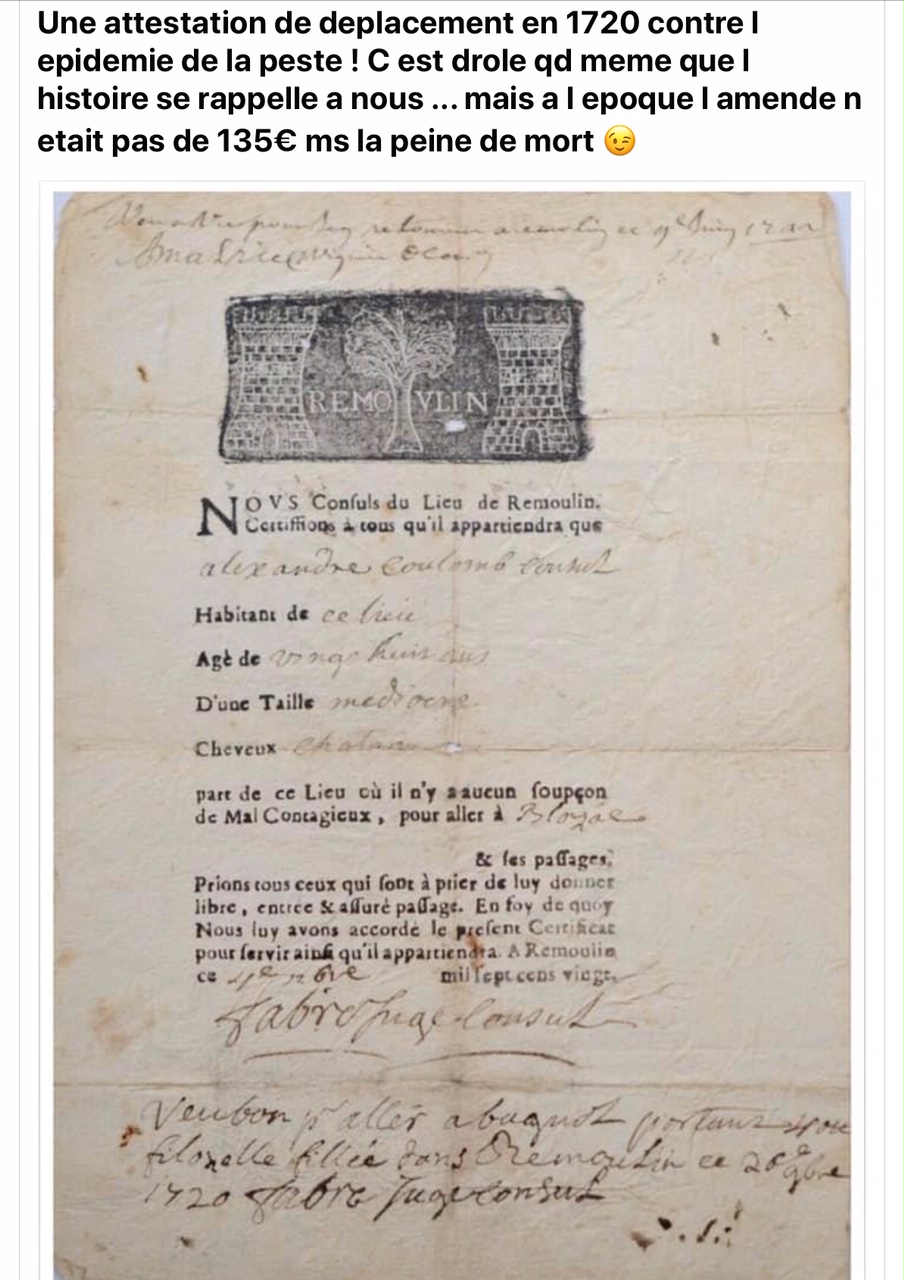 Une attestation de deplacement en 1720 contre l
epidemie de la peste ! C est drole qd meme que l
histoire se rappelle a nous ... mais a l epoque l amende n
etait pas de 135€ ms la peine de mort 😉
REMOVLIN
NOVS Conſuls du Lieu de Remoulin.
Certiffions à tous qu'il appartiendra que
alexandre coulomb consul
Habitant de ce lieu
Agè de vingt huit ans
D'une Taille mediocre
Cheveux chatain
part de ce Lieu où il n'y a aucun ſoupçon
de Mal Contagieux, pour aller à Blozac
& ſes paſſages,
Prions tous ceux qui ſont à prier de luy donner
libre, entrée & aſſuré paſſage. En foy de quoy
Nous luy avons accordé le preſent Certificat
pour ſervir ainſi qu'il appartiendra. A Remoulin
ce mil ſept cens vingt.
fabre Juge Consul
Veu bon pr aller a bagnol portant
filozelle fillée dans Remoulin ce 26e
1720 fabre Juge consul